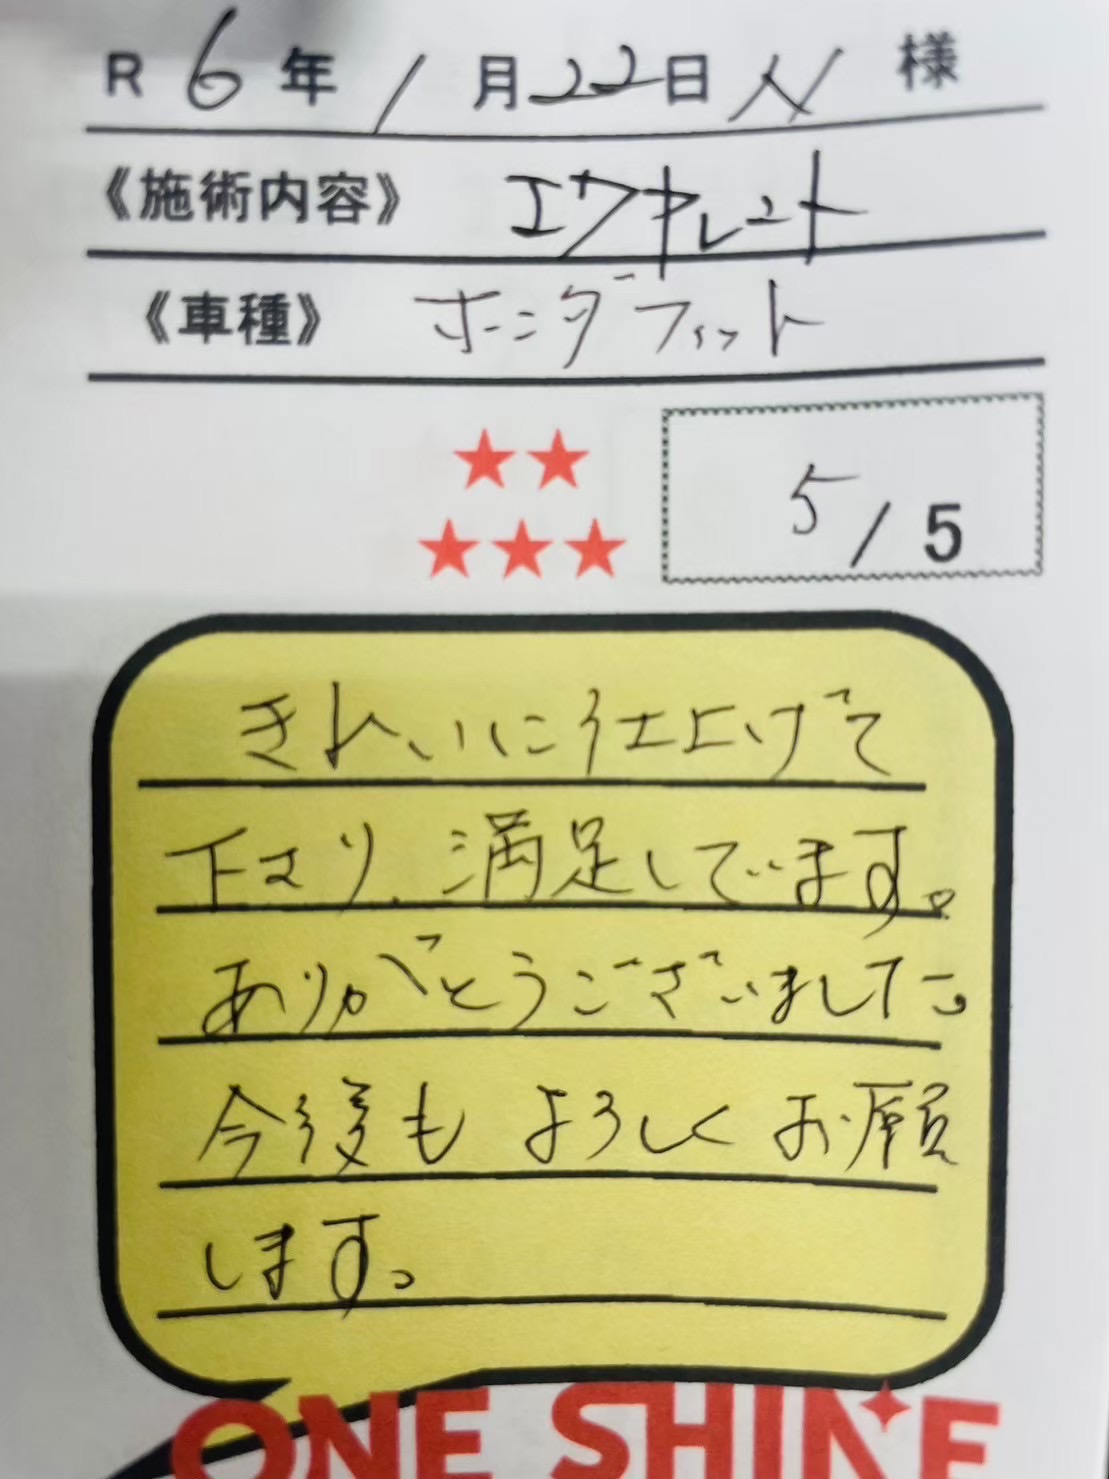 R 6年 1月22日 N 様
《施術内容》 エクキレート
《車種》 ホンダフィット
5/5
きれいに仕上げて
下さり、満足しています。
ありがとうございました。
今後もよろしくお願
します。
ONE SHINE